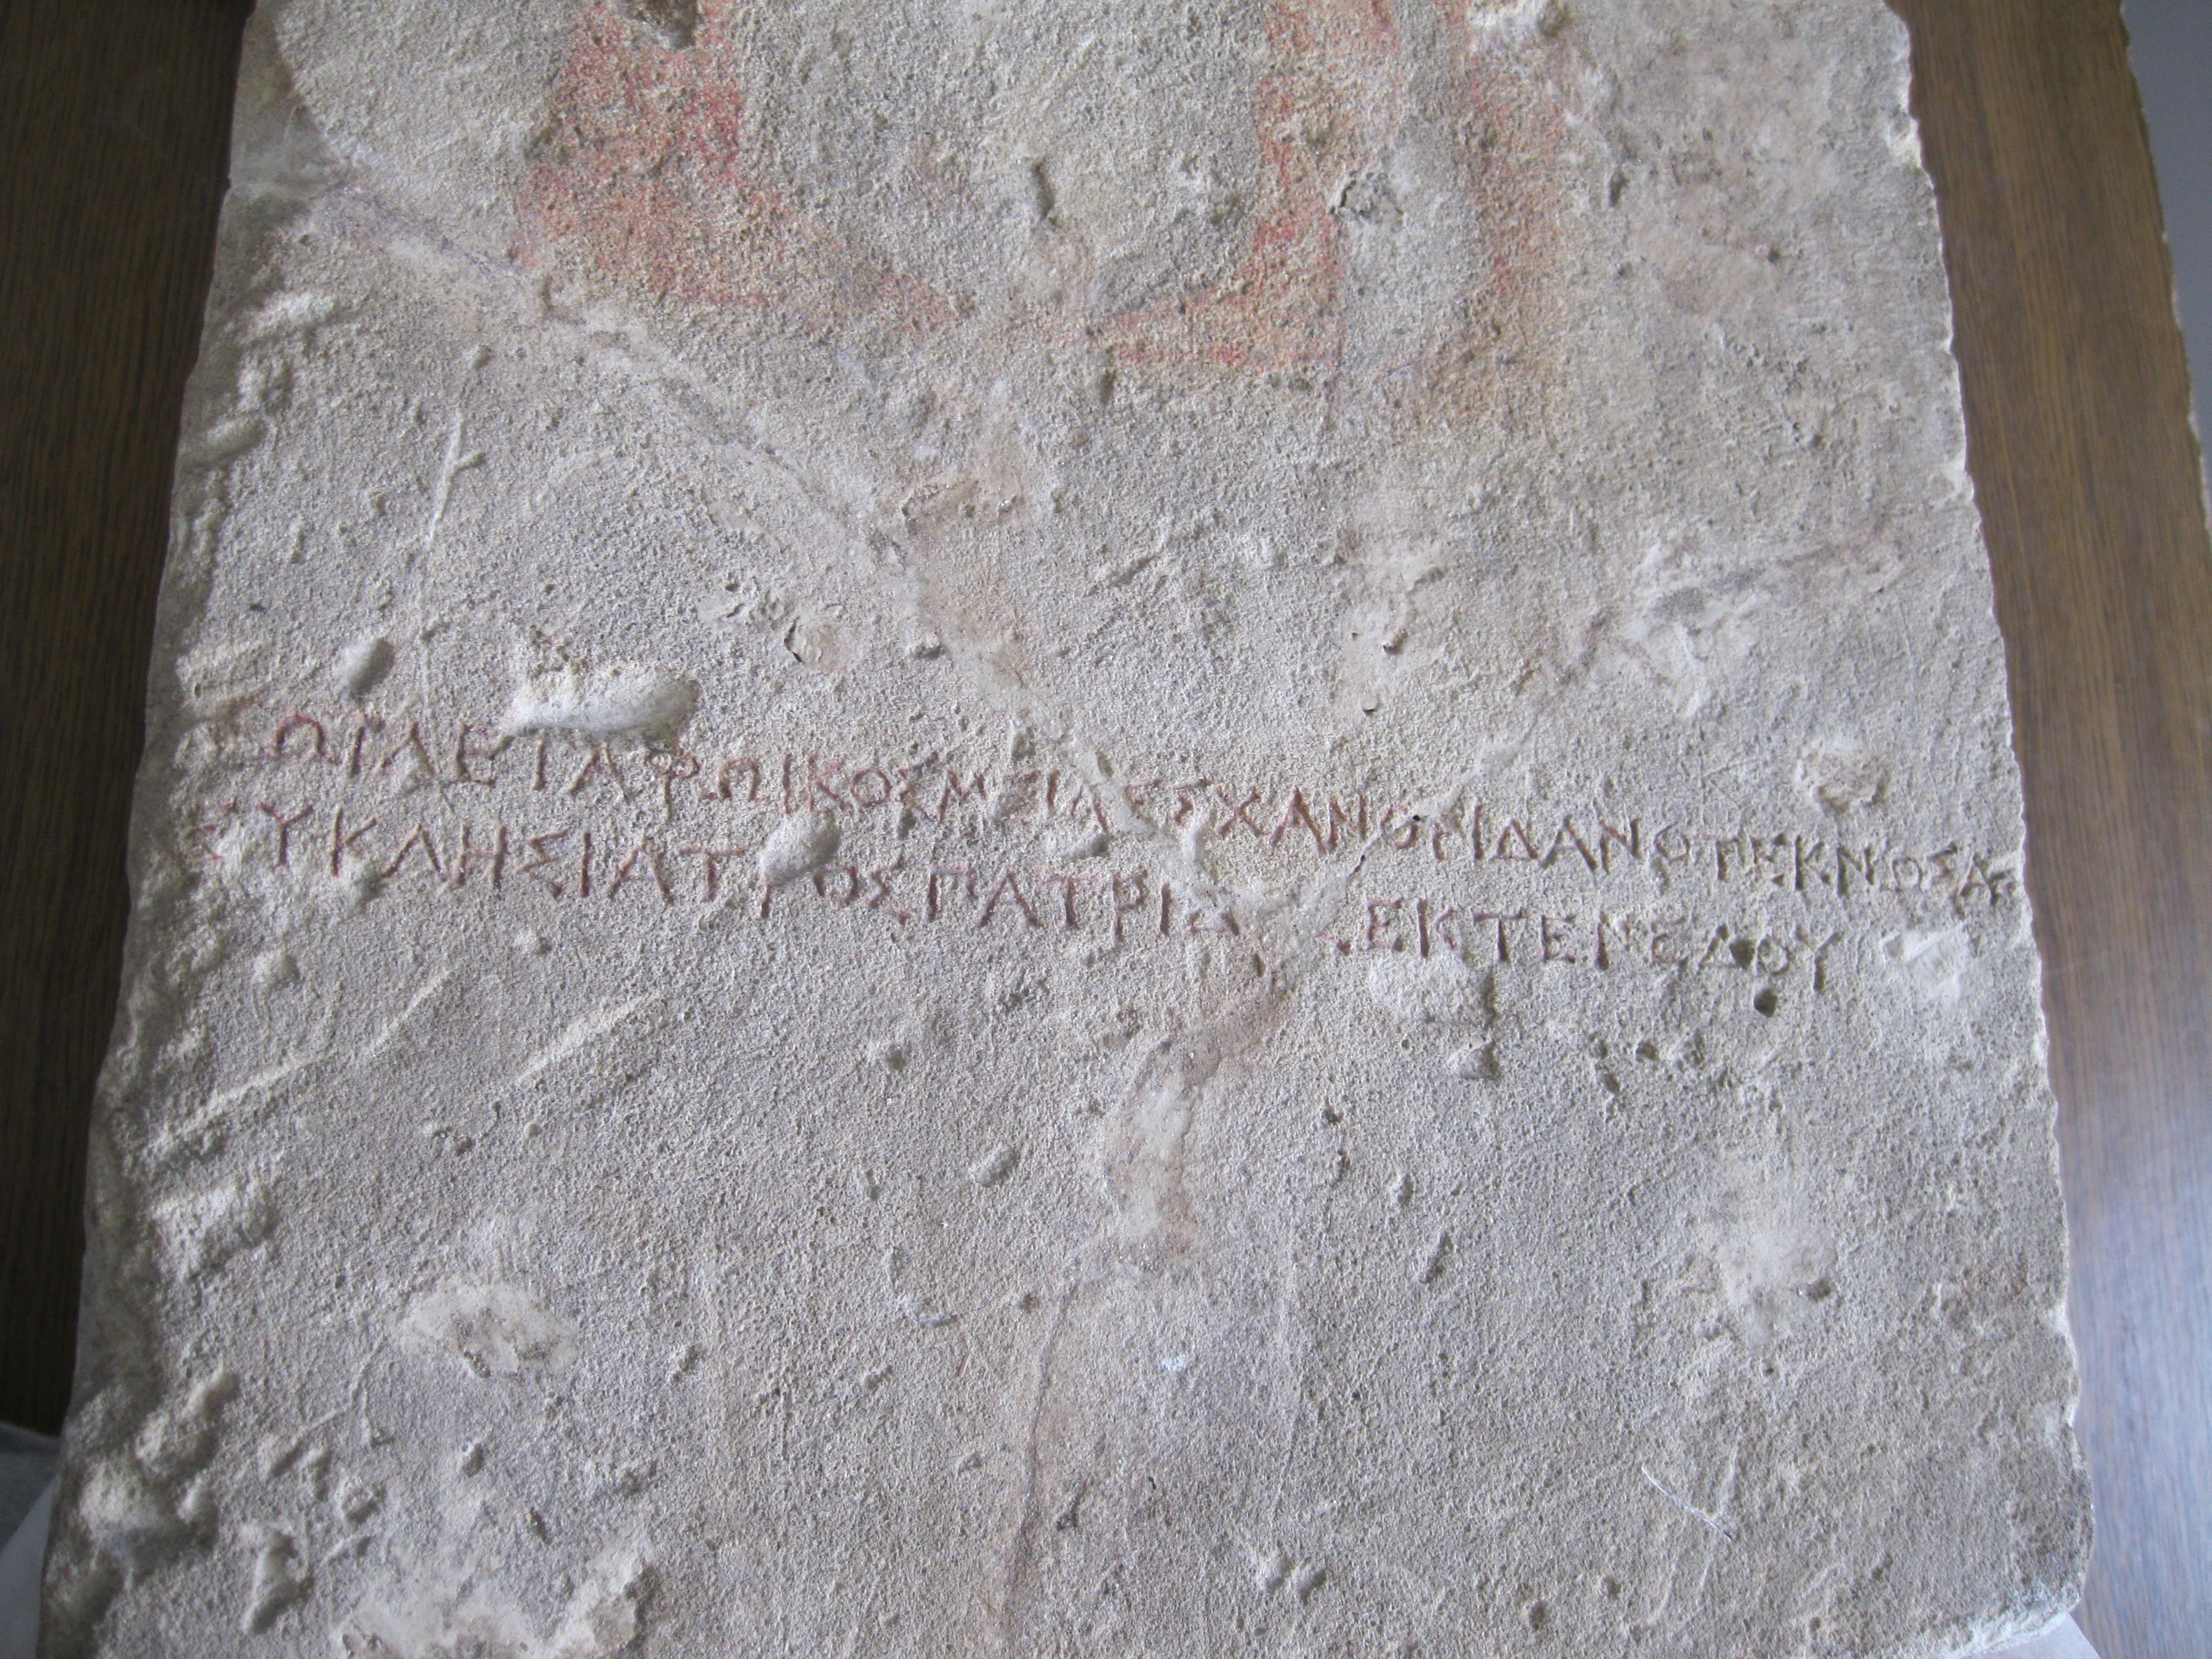 ΤΩΙΔΕΤΑΦΩΙΚΟΣΜΕΙΛΕΣΧΑΝΟΡΙΔΑΝΟΤΕΚΝΟΣΑΣ
ΕΥΚΛΗΣΙΑΤΡΟΣΠΑΤΡΙΔ ΕΚΤΕΝΕΔΟΥ